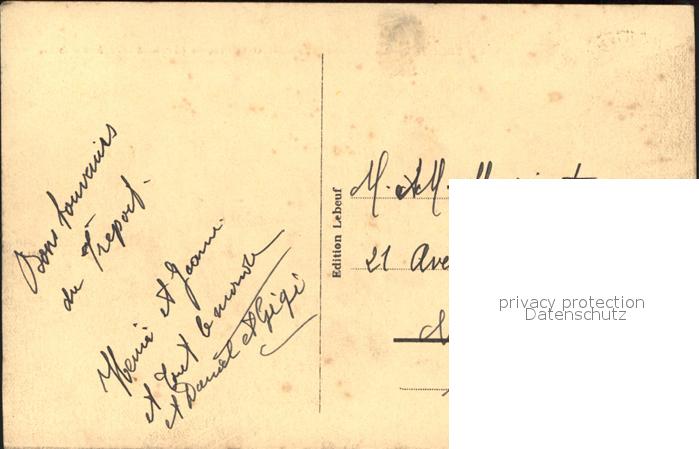 Bons souvenirs
du Tréport.
Henri et Jeanne
et tout le monde
et Daniel et Gigi
Edition Lebeuf
M. et M.
21 Ave
privacy protection
Datenschutz